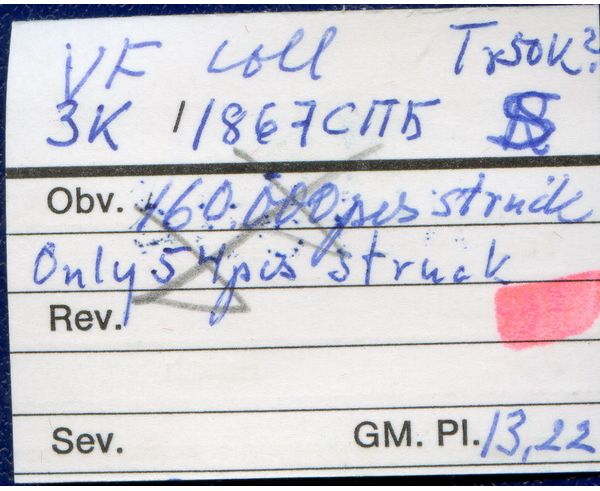 VF coll Tr50K?
3K 1867СПБ S
Obv. 160,000 pcs struck
Only 54 pcs struck
Rev.
Sev. GM. Pl. 13,22